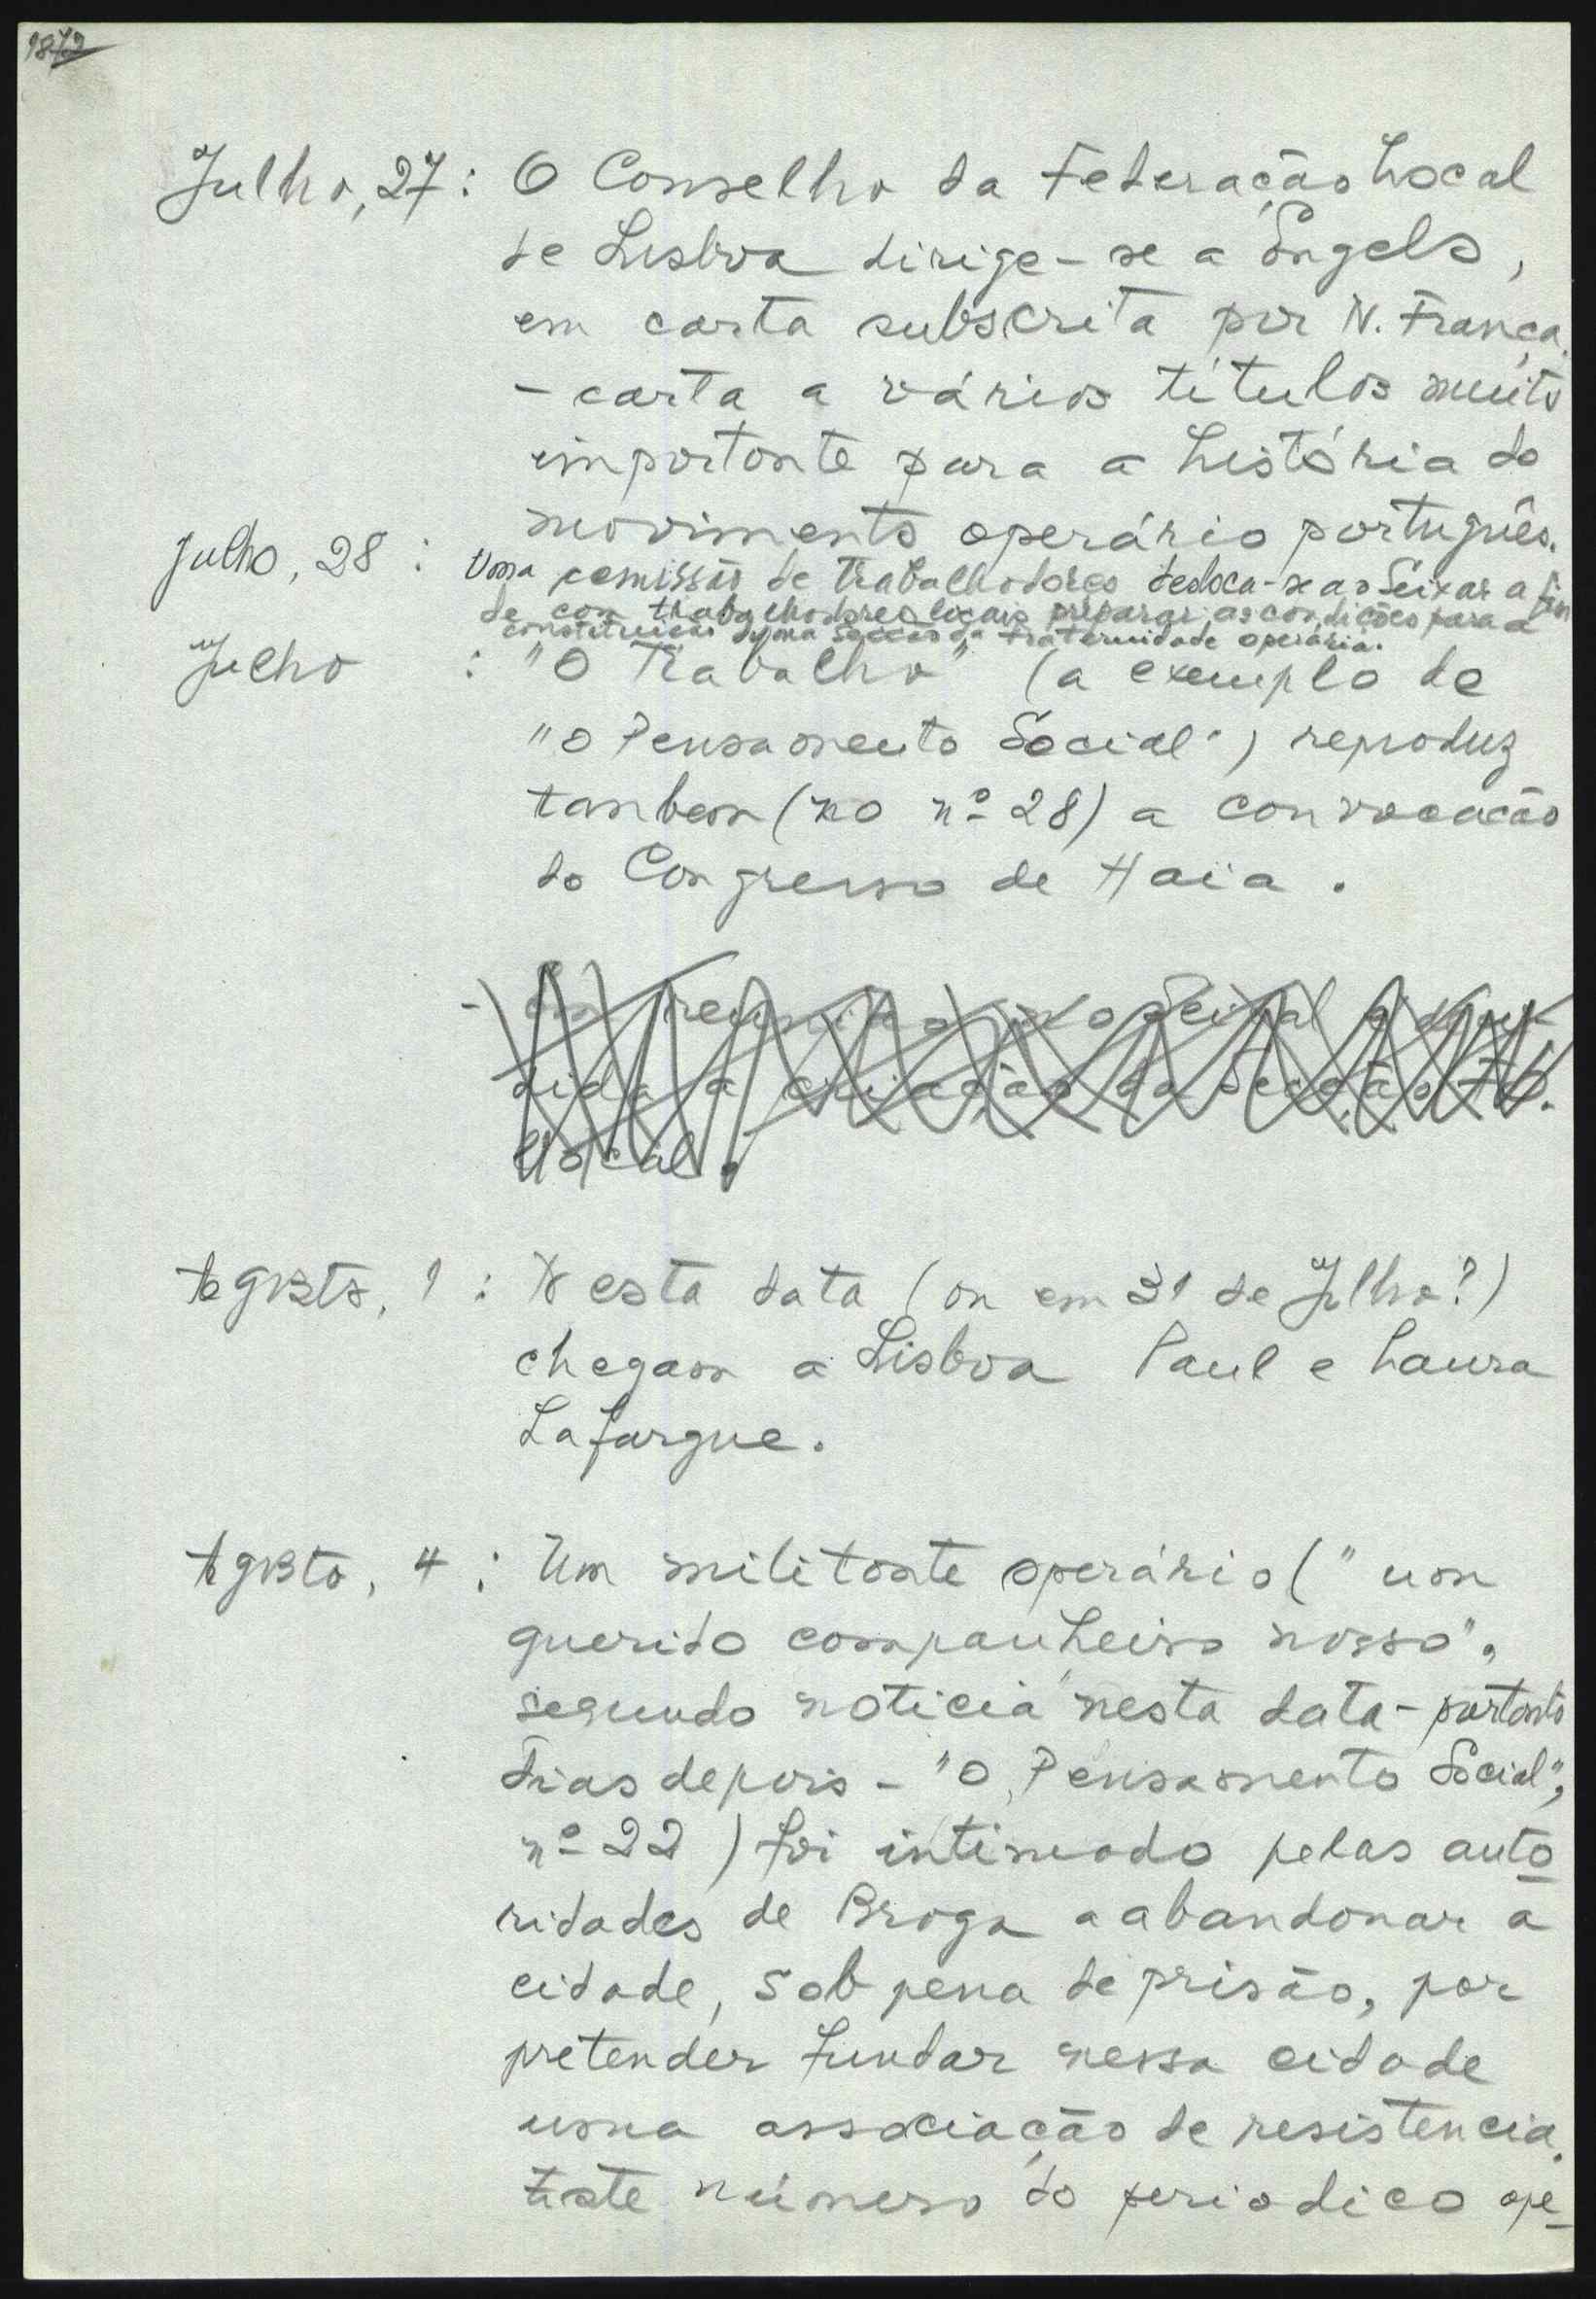 1872
Julho, 27: O Conselho da Federação Local
de Lisboa dirige-se a Engels,
em carta subscrita por N. França.
- carta a vários títulos muito
importante para a história do
movimento operário português.
Julho, 28: Uma comissão de trabalhadores desloca-se ao Seixal a fim
de com trabalhadores locais preparar as condições para a
constituição duma secção da Fraternidade operária.
Julho : "O Trabalho" (a exemplo de
"O Pensamento Social") reproduz
tambem (no nº 28) a convocação
do Congresso de Haia.
- Em reunião no Seixal é
dida a criação da Secção
local.
Agosto, 1: Nesta data (ou em 31 de Julho?)
chegam a Lisboa Paul e Laura
Lafargue.
Agosto, 4: Um militante operário ("um
querido companheiro nosso",
segundo noticia nesta data - portanto
dias depois - "O Pensamento Social",
nº 22) foi intimado pelas auto
ridades de Braga a abandonar a
cidade, sob pena de prisão, por
pretender fundar nessa cidade
uma associação de resistencia.
Este número do periodico ope-